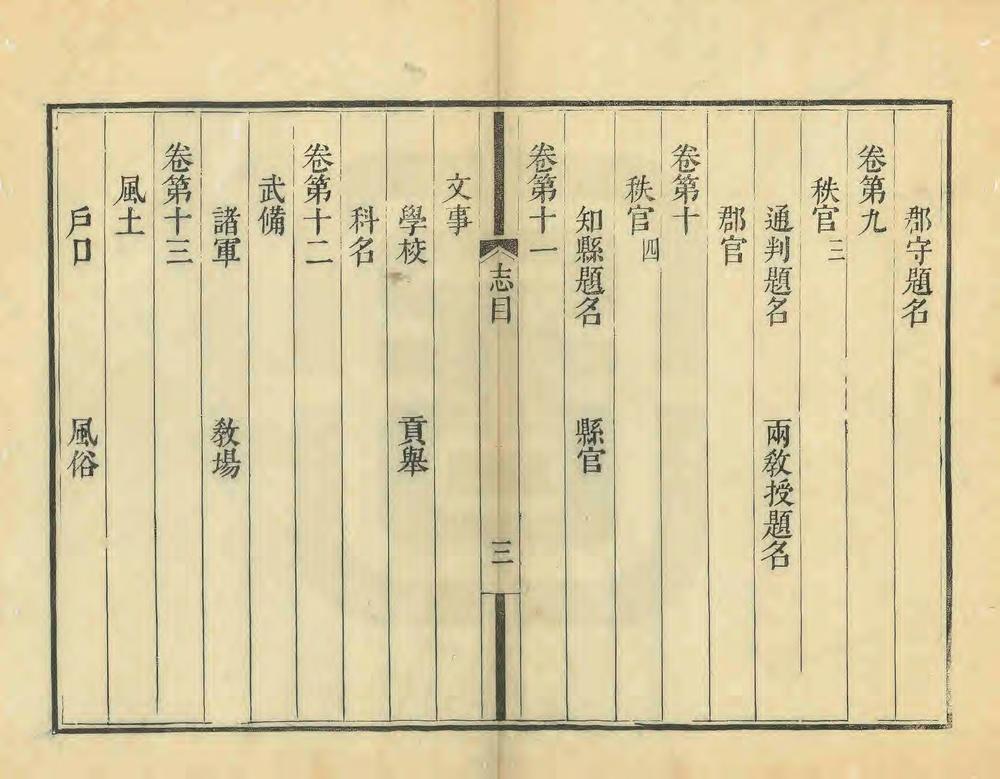 郡守題名
卷第九
秩官三
通判題名 兩敎授題名
郡官
卷第十
秩官四
知縣題名 縣官
卷第十一
志目 三
文事
學校 貢舉
科名
卷第十二
武備
諸軍 敎場
卷第十三
風土
戶口 風俗